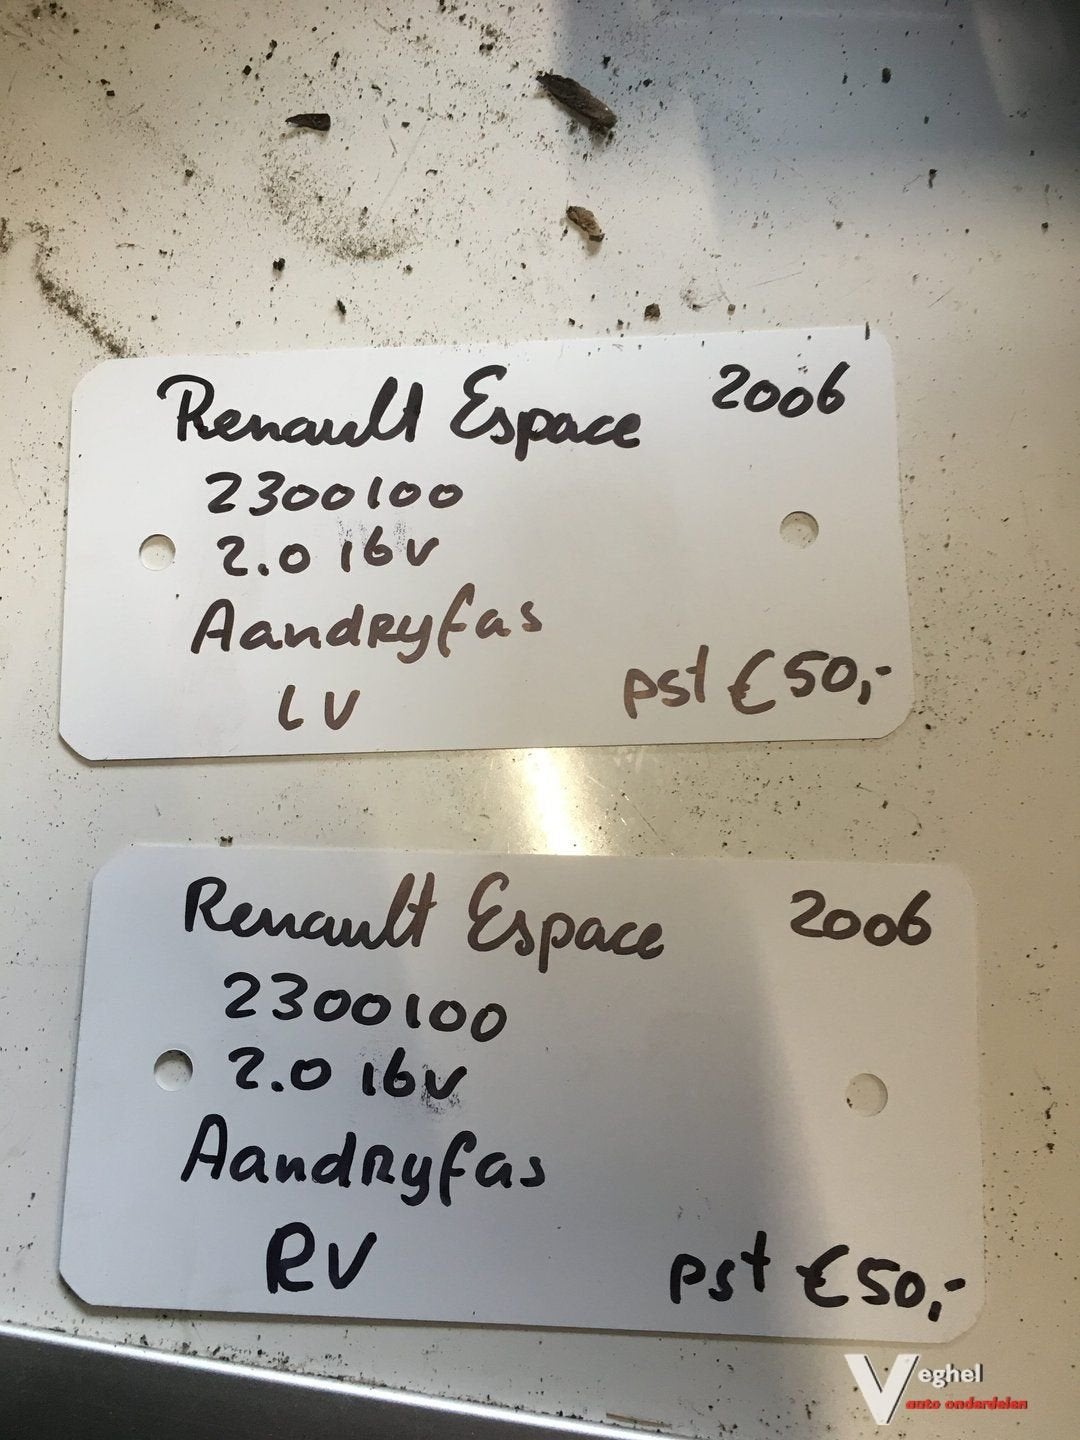 Renault Espace 2006
2300100
2.0 16v
Aandryfas
LV pst € 50,-
Renault Espace 2006
2300100
2.0 16v
Aandryfas
RV pst € 50,-
Veghel
auto onderdelen